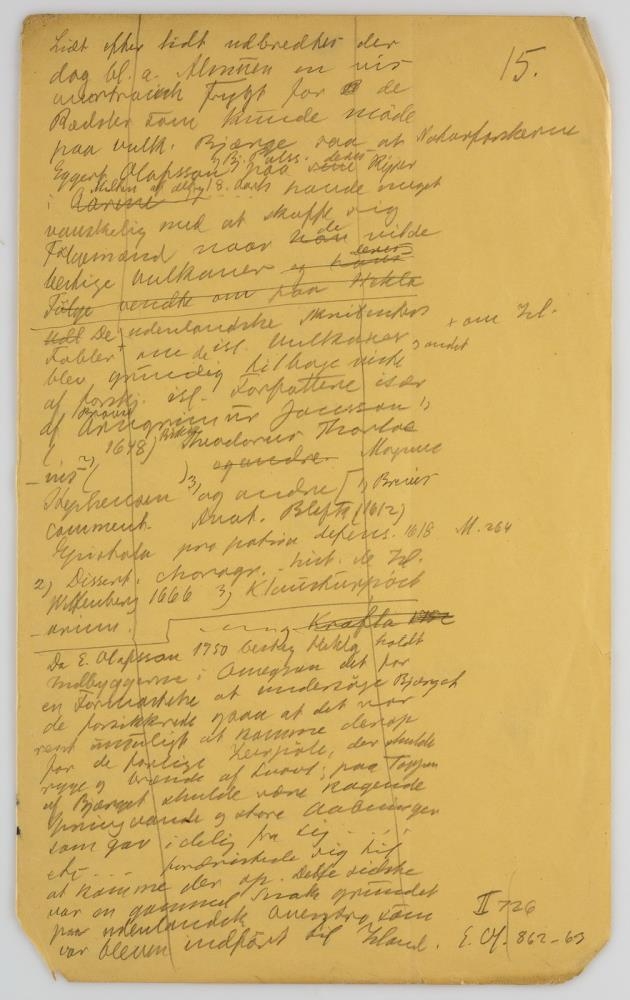 15.
Lidt efter lidt udbredtes der
dog bl. a. Almuen en vis
Frygt for de
Rædsler som kunde møde
paa vulk. Bjærge saa at Naturforskerne
Eggert Olafsson, Bj. Pålss. paa deres Rejser
i Midten af det 18. Aarh havde meget
vanskelig ved at skaffe sig
Følgemænd naar de vilde
bestige vulkaner og deres
Følge vendte om paa Hekla
De udenlandske Skribenters
Fabler om de isl. Vulkaner + om Isl.
blev grundig tilbage viste
af forskj. isl. Forfattere især
af Arngrimur Jonsson 1)
( 1648) Theodorus Thorlac
-ius 2) ( ) og andre. Magnus
Stephensen 3) og andre [ 1) Brevis
comment. Anat. Blefk (1612)
Epistola pro patria defens. 1618 M. 264
2) Dissert. chorogr. hist. de Isl.
Wittenberg 1666 3) Klausturpost
-urinn.
Krafla
Da E. Olafsson 1750 besteg Hekla holdt
Indbyggerne i Omegnen det for
en Formastelse at undersøge Bjærget
de forsikkrede ham at det var
rent umuligt at komme derop
for de farlige Hverpøle, der skulde
ryge og brænde af Svovl; paa Toppen
af Bjærget skulde være kogende
Springvande og store Aabninger
som gav idelig fra sej . . .
etc . . .
at komme der op. Dette sidste
var en gammel Snak grundet
paa udenlandsk Overtro som
var bleven indført til Island.
II 726
E. Ol. 862-63